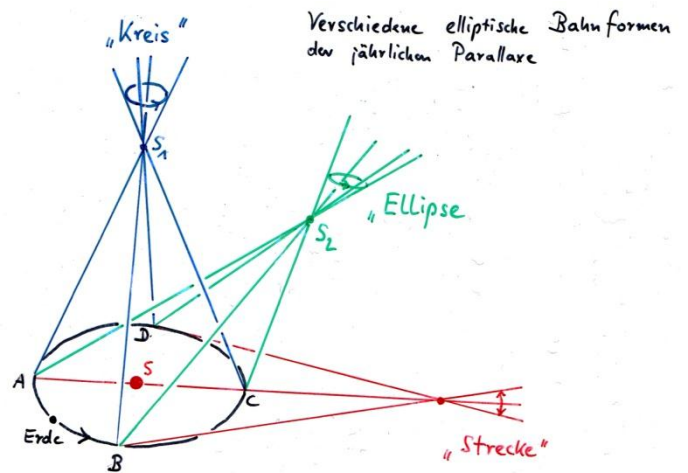 Verschiedene elliptische Bahnformen
der jährlichen Parallaxe
„Kreis"
S1
S2
„Ellipse
D
A
S
C
Erde
B
„Strecke"